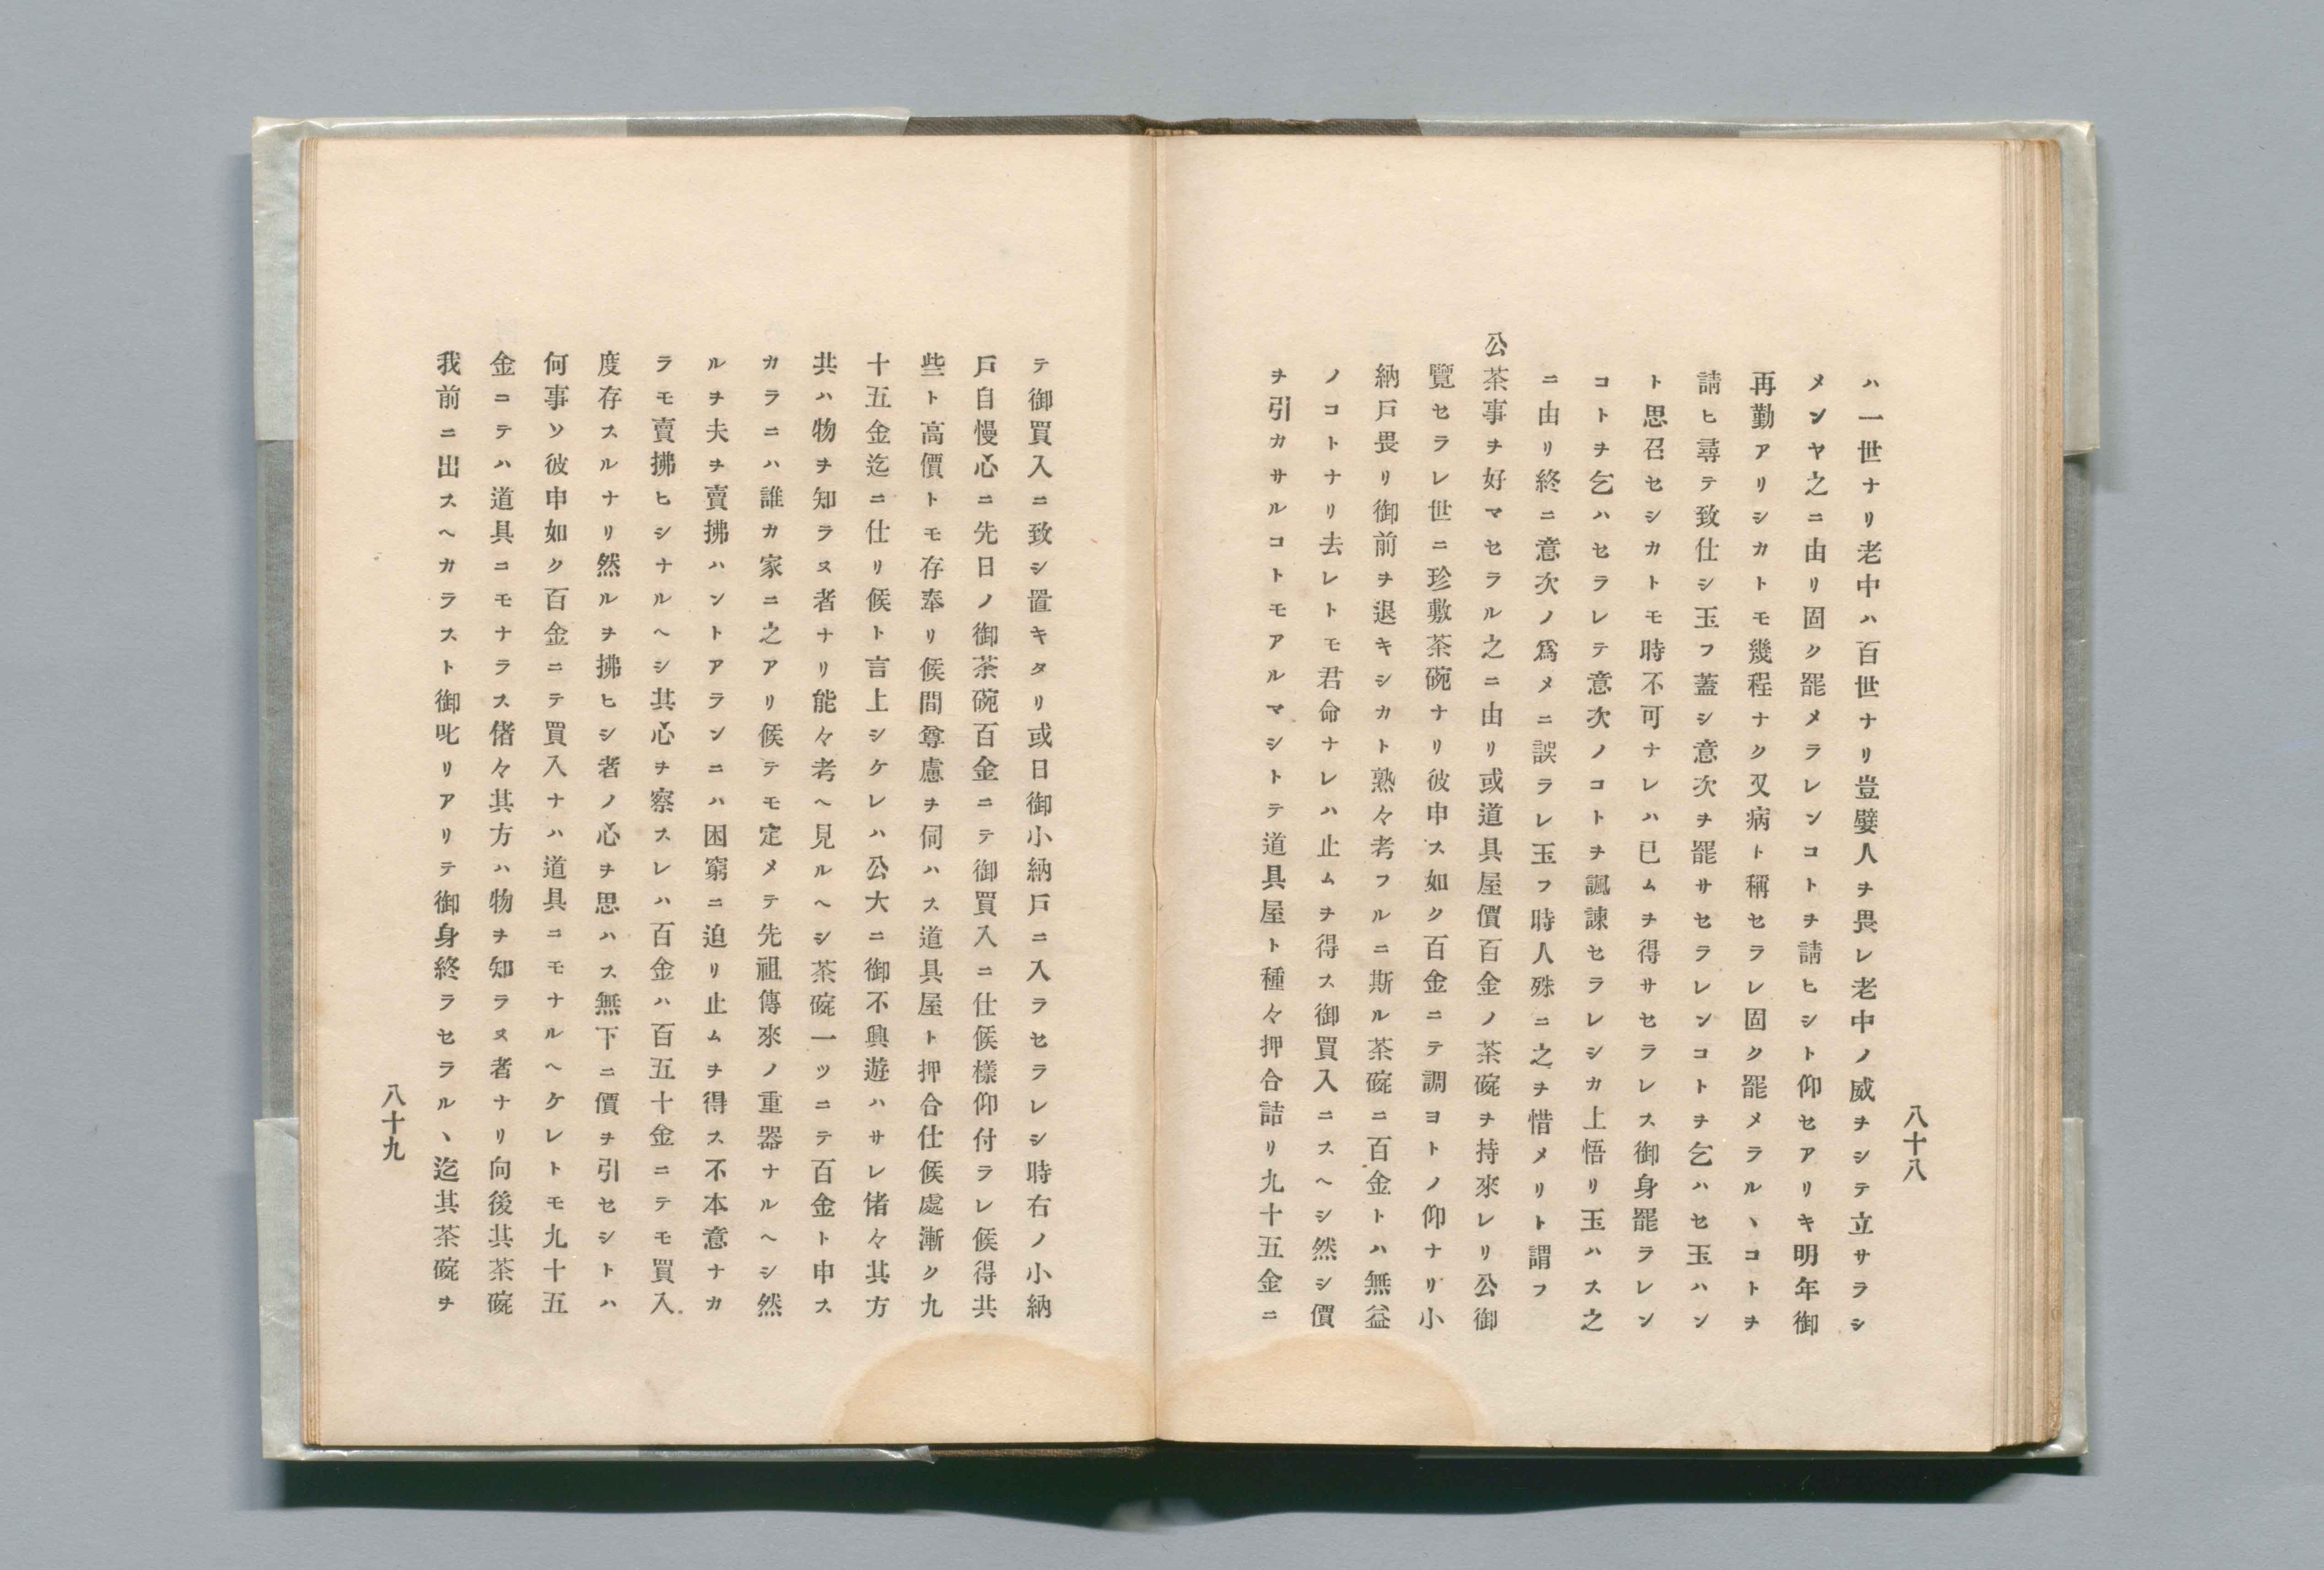 八十八
ハ一世ナリ老中ハ百世ナリ豈嬖人ヲ畏レ老中ノ威ヲシテ立サラシ
メンヤ之ニ由リ固ク罷メラレンコトヲ請ヒシト仰セアリキ明年御
再勤アリシカトモ幾程ナク又病ト稱セラレ固ク罷メラルヽコトヲ
請ヒ尋テ致仕シ玉フ蓋シ意次ヲ罷サセラレンコトヲ乞ハセ玉ハン
ト思召セシカトモ時不可ナレハ已ムヲ得サセラレス御身罷ラレン
コトヲ乞ハセラレテ意次ノコトヲ諷諫セラレシカ上悟リ玉ハス之
ニ由リ終ニ意次ノ爲メニ誤ラレ玉フ時人殊ニ之ヲ惜メリト謂フ
公茶事ヲ好マセラル之ニ由リ或道具屋價百金ノ茶碇ヲ持來レリ公御
覽セラレ世ニ珍敷茶碗ナリ彼申ス如ク百金ニテ調ヨトノ仰ナリ小
納戸畏リ御前ヲ退キシカト熟々考フルニ斯ル茶碇ニ百金トハ無益
ノコトナリ去レトモ君命ナレハ止ムヲ得ス御買入ニスヘシ然シ價
ヲ引カサルコトモアルマシトテ道具屋ト種々押合詰リ九十五金ニ
テ御買入ニ致シ置キタリ或日御小納戸ニ入ラセラレシ時右ノ小納
戸自慢心ニ先日ノ御茶碗百金ニテ御買入ニ仕候樣仰付ラレ候得共
些ト高價トモ存奉リ候間尊慮ヲ伺ハス道具屋ト押合仕候處漸ク九
十五金迄ニ仕リ候ト言上シケレハ公大ニ御不興遊ハサレ偖々其方
共ハ物ヲ知ラヌ者ナリ能々考ヘ見ルヘシ茶碇一ツニテ百金ト申ス
カラニハ誰カ家ニ之アリ候テモ定メテ先祖傳來ノ重器ナルヘシ然
ルヲ夫ヲ賣拂ハントアランニハ困窮ニ迫リ止ムヲ得ス不本意ナカ
ラモ賣拂ヒシナルヘシ其心ヲ察スレハ百金ハ百五十金ニテモ買入
度存スルナリ然ルヲ拂ヒシ者ノ心ヲ思ハス無下ニ價ヲ引セシトハ
何事ソ彼申如ク百金ニテ買入ナハ道具ニモナルヘケレトモ九十五
金ニテハ道具ニモナラス偖々其方ハ物ヲ知ラヌ者ナリ向後其茶碇
我前ニ出スヘカラスト御叱リアリテ御身終ラセラルヽ迄其茶碇ヲ
八十九